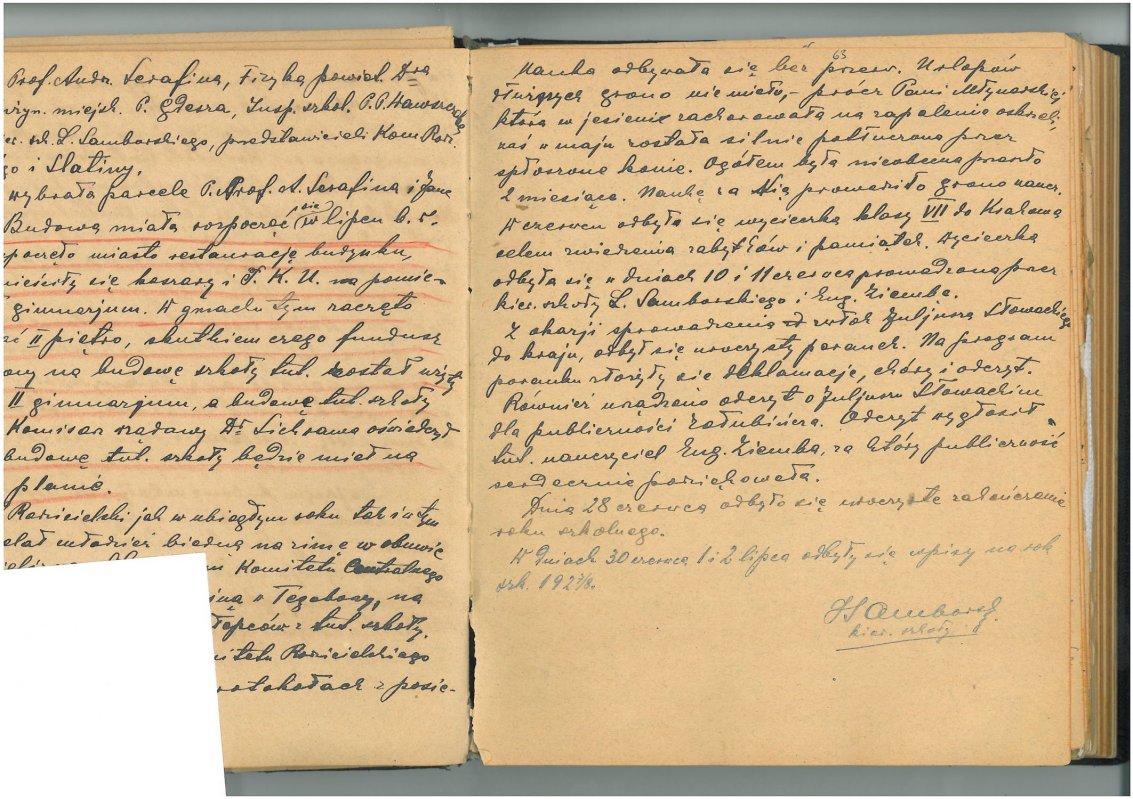 Prof. Andr. Serafina, Fizyka powiat. Dra
inżyn. miejsk. P. Insp. szkol. P. P.
szk. L. Samborskiego, przedstawicieli Kom. Rodz.
go i Slatiny.
wybrała parcelę P. Prof. A. Serafina i
Budowa miała rozpocząć się w lipcu b. r.
poczęło miasto restaurację budynku,
mieściły się koszary i P. K. U. na pomie-
gimnazjum. W gmachu tym zaczęto
II piętro, skutkiem czego fundusz
ony na budowę szkoły tut. został użyty
II gimnazjum, a budowę tut. szkoły
Komisarz rządowy Dr oświadczył
budowę tut. szkoły będzie miał na
planie.
Rodzicielski jak w ubiegłym roku tak i w tym
młodzież biedną na zimę w obuwie
Komitetu Centralnego
w Tęgoborzy, na
chłopców z tut. szkoły.
mitetu Rodzicielskiego
rotokołach z posie-
63
Nauka odbywała się bez przerw. Urlopów
dłuższych grono nie miało, - prócz Pani Młynarskiej
która w jesieni zachorowała na zapalenie oskrzeli,
zaś w maju została silnie potłuczona przez
spłoszone konie. Ogółem była nieobecna przeszło
2 miesiące. Naukę za Nią prowadziło grono naucz.
W czerwcu odbyła się wycieczka klasy VII do Krakowa
celem zwiedzenia zabytków i pamiątek. Wycieczka
odbyła się w dniach 10 i 11 czerwca prowadzona przez
kier. szkoły L. Samborskiego i Eug. Ziembę.
Z okazji sprowadzenia zwłok Juljusza Słowackiego
do kraju, odbył się uroczysty poranek. Na program
poranku złożyły się deklamacje, chóry i odczyt.
Również urządzono odczyt o Juljuszu Słowackim
dla publiczności Załubińcza. Odczyt wygłosił
tut. nauczyciel Eug. Ziemba, za który publiczność
serdecznie podziękowała.
Dnia 28 czerwca odbyło się uroczyste zakończenie
roku szkolnego.
W dniach 30 czerwca 1 i 2 lipca odbyły się wpisy na rok
szk. 1927/8.
LSamborski
kier. szkoły